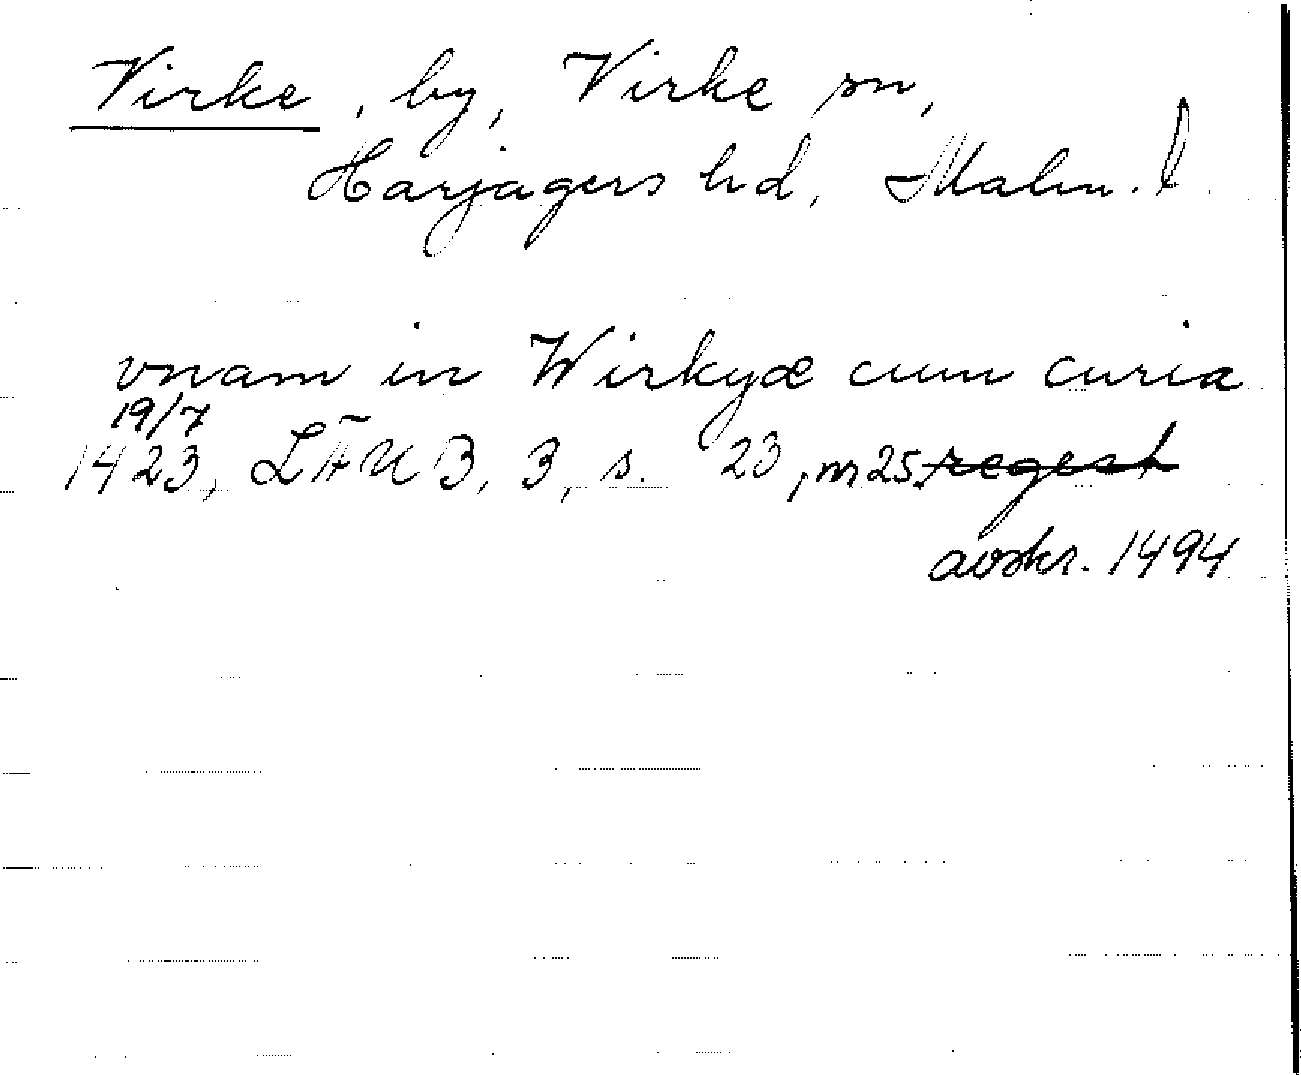 Virke, by, Virke sn,
Harjagers hd, Malm. l.
vnam in Wirkyæ cum curia
19/7
1423, LÄUB, 3, s. 23, m 25 regest
avskr. 1494